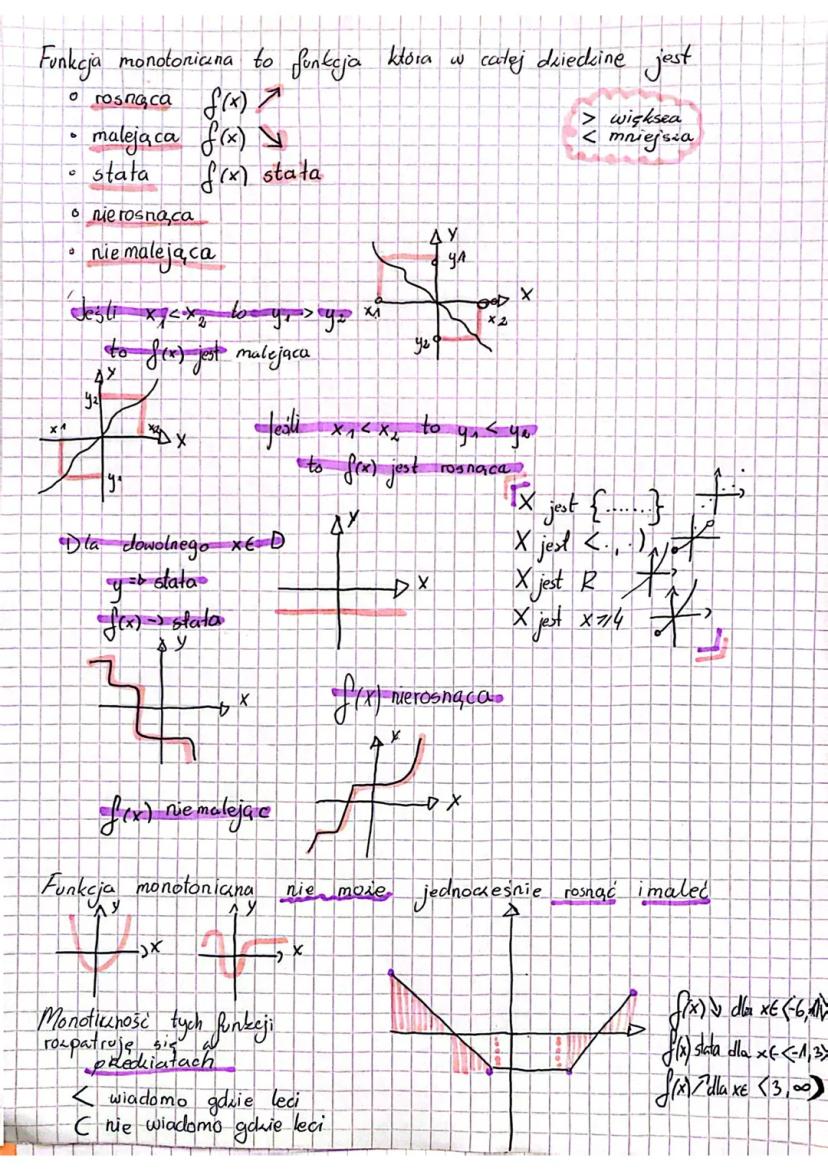 Funkcja monotoniczna to funkcja która w całej dziedzinie jest
◦ rosnąca f(x) ↗
◦ malejąca f(x) ↘
◦ stała f(x) stała
◦ nierosnąca
◦ niemalejąca
> większa
< mniejsza
Jeśli x1<x2 to y1>y2
to f(x) jest malejąca
Y
y1
x1
X
x2
y2
Y
y2
x1
x2
X
y1
Jeśli x1<x2 to y1<y2
to f(x) jest rosnąca
X jest {.......}
X jest <..,.)
X jest R
X jest x⩾4
Dla dowolnego x∈D
y => stała
f(x) -> stała
Y
X
Y
X
f(x) nierosnąca
f(x) niemalejąc
Y
X
Funkcja monotoniczna nie może jednocześnie rosnąć i maleć
Y
X
Y
X
Monotliczność tych funkcji
rozpatruję się w
przedziałach
< wiadomo gdzie leci
( nie wiadomo gdzie leci
f(x)↘ dla x∈<-6,-1>
f(x) stała dla x∈<-1,3>
f(x)↗ dla x∈ <3,∞)